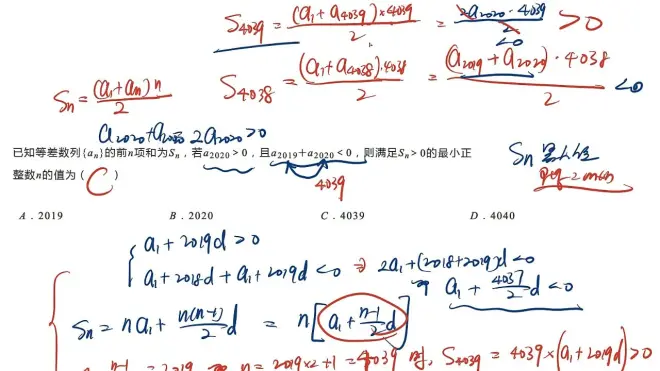 S₄₀₃₉ = (a₁+a₄₀₃₉)×4039 / 2 = 2a₂₀₂₀·4039 / 2 > 0
<0
Sₙ = (a₁+aₙ)n / 2
S₄₀₃₈ = (a₁+a₄₀₃₈)·4038 / 2 = (a₂₀₁₉+a₂₀₂₀)·4038 / 2 <0
2a₂₀₂₀>0
已知等差数列{aₙ}的前n项和为Sₙ，若a₂₀₂₀>0，且a₂₀₁₉+a₂₀₂₀<0，则满足Sₙ>0的最小正
整数n的值为（C）
4039
Sₙ
p+q=m+n
A．2019 B．2020 C．4039 D．4040
{ a₁+2019d>0
a₁+2018d+a₁+2019d<0 ⇒ 2a₁+(2018+2019)d<0
⇒ a₁+4037/2 d<0
Sₙ = na₁+n(n-1)/2 d = n[a₁+n-1/2 d]
n-1 = 2019 ⇒ n=2019×2+1=4039 时, S₄₀₃₉=4039×(a₁+2019d)>0